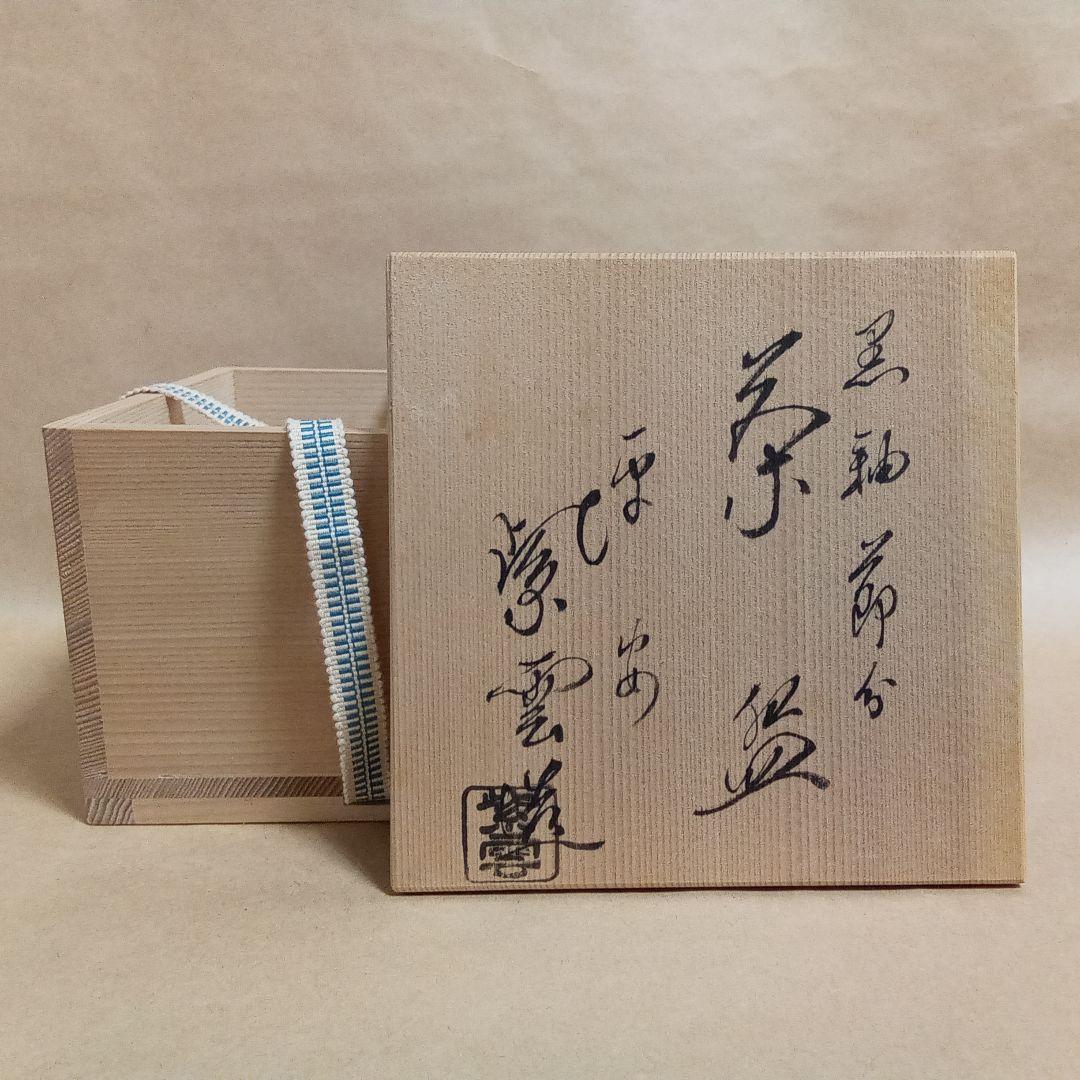 黒釉節分
茶盌
平安
紫雲造
紫雲